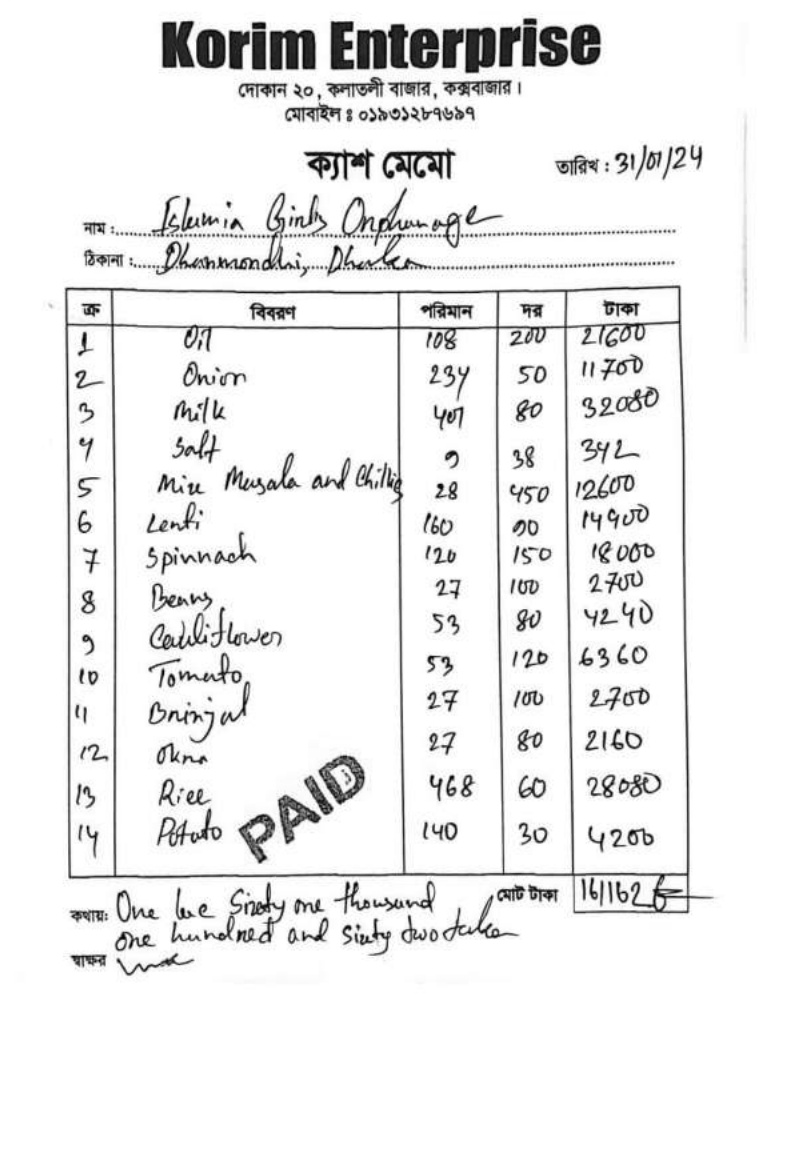 Korim Enterprise
দোকান ২০, কলাতলী বাজার, কক্সবাজার।
মোবাইল ঃ ০১৯৩১২৮৭৬৯৭
ক্যাশ মেমো
তারিখ : 31/01/24
নাম : Islamia Girls Orphanage
ঠিকানা : Dhanmondhi, Dhaka
ক্র বিবরণ পরিমান দর টাকা
1 Oil 108 200 21600
2 Onion 234 50 11700
3 Milk 401 80 32080
4 Salt 9 38 342
5 Mix Masala and Chillis 28 450 12600
6 Lenti 160 90 14900
7 Spinnach 120 150 18000
8 Beans 27 100 2700
9 Cauliflower 53 80 4240
10 Tomato 53 120 6360
11 Brinjal 27 100 2700
12 Okra 27 80 2160
13 Rice 468 60 28080
14 Potato 140 30 4200
PAID
মোট টাকা 161162
কথায়: One lac Sixty one thousand
one hundred and sixty two taka
স্বাক্ষর